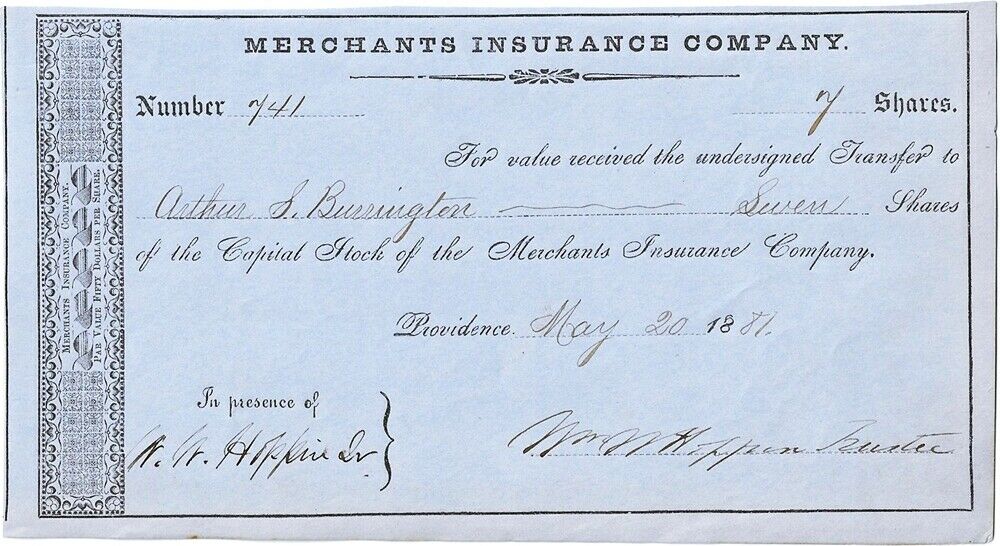 MERCHANTS INSURANCE COMPANY.
Number 741 7 Shares.
For value received the undersigned Transfer to
Arthur S. Burrington Seven Shares
of the Capital Stock of the Merchants Insurance Company.
Providence. May 20 1881.
In presence of
W. W. Hoppin Jr
Wm W Hoppin Trustee
MERCHANTS INSURANCE COMPANY.
PAR VALUE FIFTY DOLLARS PER SHARE.